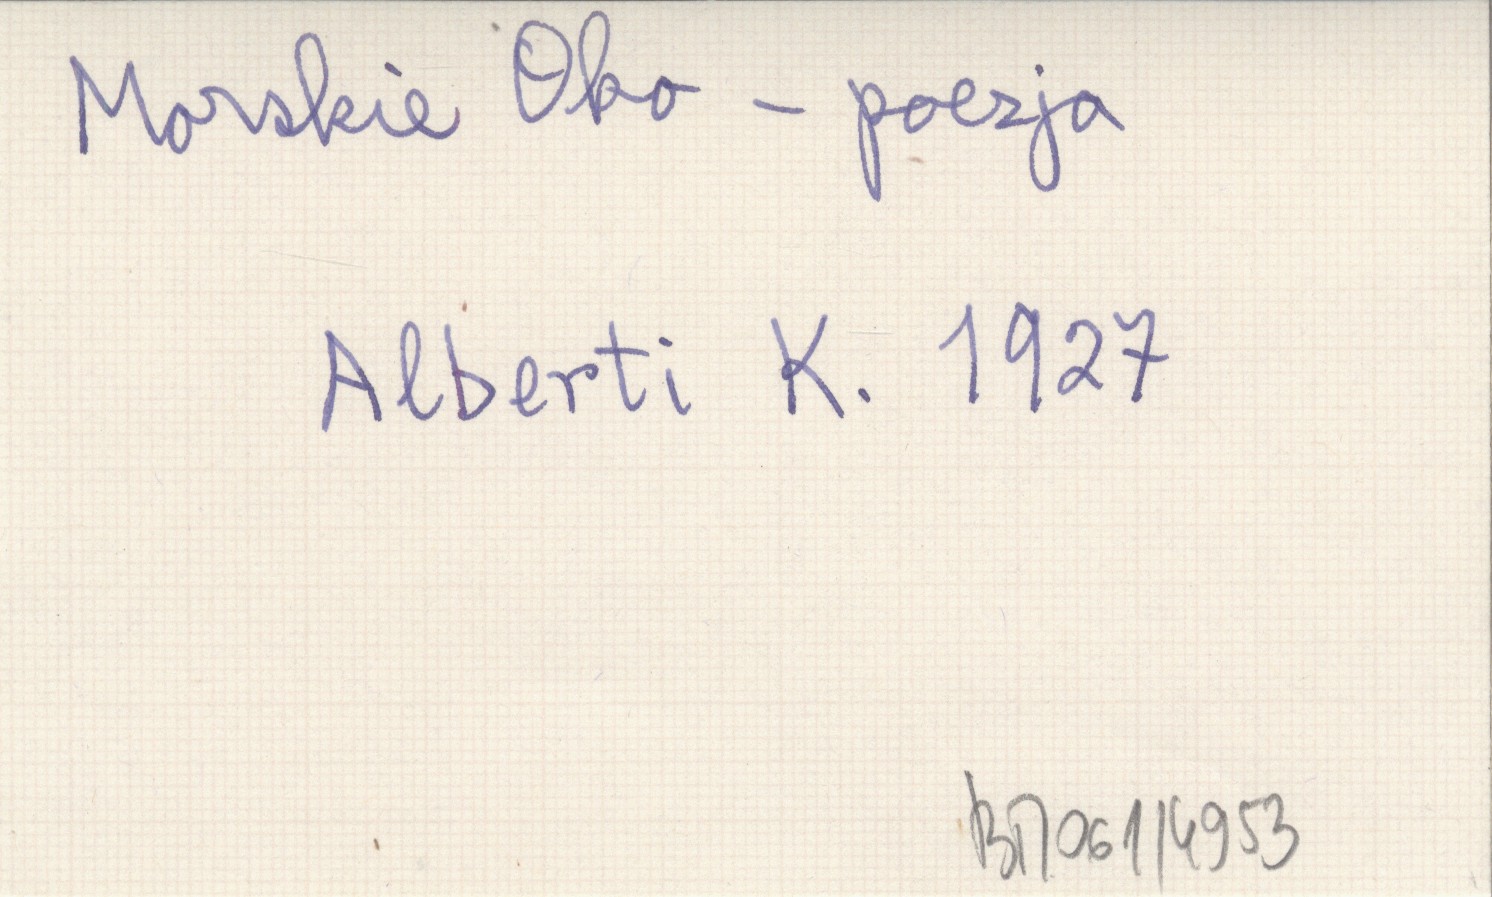 Morskie Oko - poezja
Alberti K. 1927
ВП061/4953